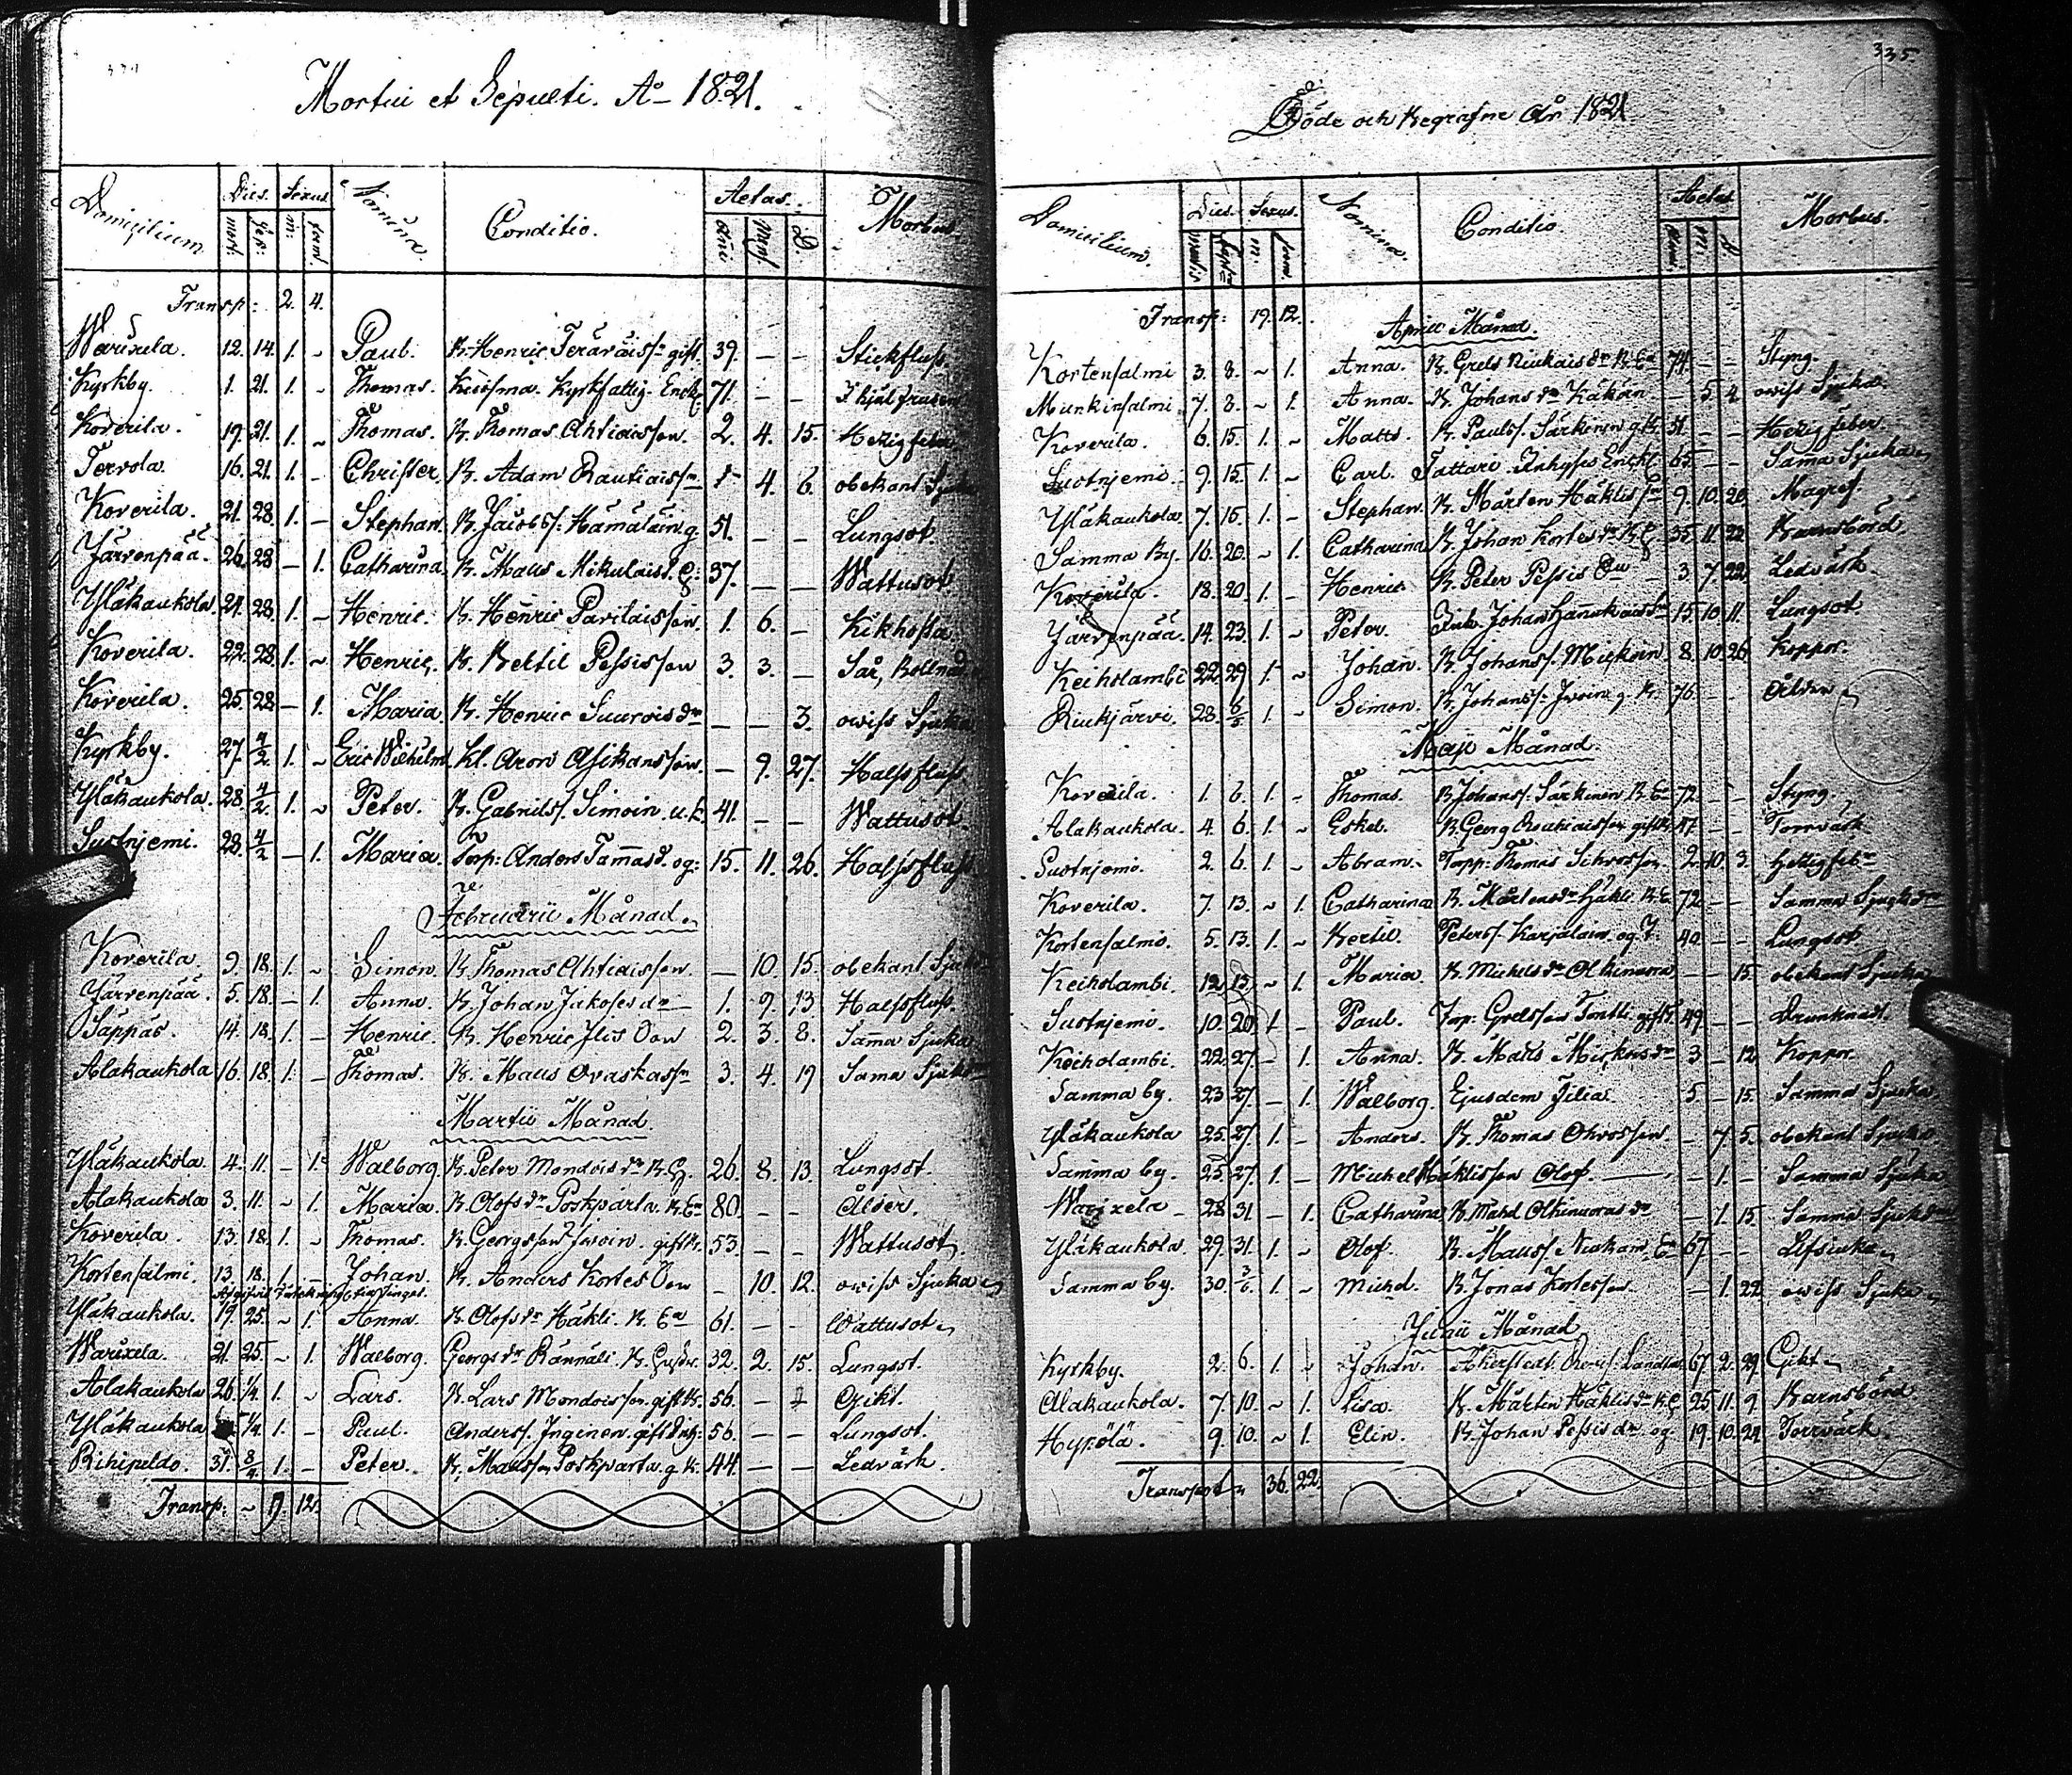 334
Mortui et Sepulti. Ao 1821.
Domicilium Dies. Sexus. Nomina Conditio. Aetas. Morbus
mort: sep: m: foem. Anni Mens. D.
Transp: 2. 4.
Warixela. 12. 14. 1. - Paul. B. Henric Teräväiss. gift. 39. - - Stickfluss
Kyrkby. 1. 21. 1. - Thomas. Kuosma. Kyrkfattig. Enckl. 71. - - Ihjälfrusen
Koverila. 19. 21. 1. - Thomas. B. Thomas Ahtiaisson. 2. 4. 15. Hezig feber
Tervola. 16. 21. 1. - Christer. B. Adam Rautiaiss. 4. 6. obekant Sjuka
Koverila. 21. 28. 1. - Stephan. B. Jacobss: Hämäläin g. 51. - - Lungsot.
Järvenpää. 26. 28 - 1. Catharina B. Mats Mikulaisd. 37. - - Wattusot
Yläkaukola. 24. 28. 1. - Henric. B. Henric Pavilaisson. 1. 6. - Kikhosta
Koverila. 22. 28. 1. - Henric. B. Bertil Pessisson 3. 3. - Sår,
Koverila. 25. 28 - 1. Maria B. Henric Suuroisdr - - 3. owiss Sjuka
Kyrkby. 27. 4/2. 1. - Eric Wilhelm Kl. Aron Asikansson. - 9. 27. Halsfluss
Yläkaukola. 28. 4/2. 1. - Peter. B. Gabrielss. Simoin. 41. - - Wattusot.
Suotnjemi. 28. 4/2 - 1. Maria. Torp: Anders Tammisd. og: 15. 11. 26. Halsfluss
Februarii Månad.
Koverila. 9. 18. 1. - Simon. B. Thomas Ahtiaisson. - 10. 15. obekant Sjukd
Järvenpää. 5. 18. - 1. Anna. B. Johan Jakosesdr 1. 9. 13 Halsfluss.
Säppäs. 14. 18. 1. - Henric. B. Henric Ilis Son 2. 3. 8. Samma Sjuka
Alakaukola 16. 18. 1. - Thomas. B. Mats Ovaskass 3. 4. 19 Sama Sjukd
Martii Månad.
Yläkaukola. 4. 11. - 1. Walborg. B. Peter Mondoisdr B. 26. 8. 13. Lungsot.
Alakaukola 3. 11. - 1. Maria. B. Olofsdr Poskparta. B. Ea 80. - - Ålder.
Koverila. 13. 18. 1. - Thomas. B. Georgsson Iwoin. gift B. 53. - - Wattusot
Kortensalmi. 13. 18. 1. - Johan. B. Anders Kortes Son - 10. 12. owiss Sjuka
Yläkaukola. 19. 25. - 1. Anna. B. Olofsdr Häkli. B. Ea 61. - - Wattusot
Warixela. 21. 25. - 1. Walborg. Georgsdr Rännäli. B. 32. 2. 15. Lungsot.
Alakaukola 26. 1/4. 1. - Lars. B. Lars Mondoisson. gift B. 56. - - Gikt.
Yläkaukola 1/4. 1. - Paul. Anderss. Inginen. gift 56. - - Lungsot.
Rihipeldo. 31. 8/4. 1. - Peter. B. Matsson Poskparta. g. B. 44. - - Ledvärk.
Transp: - 19. 12.
335
Döde och Begrafne År 1821
Domicilium. Dies. Sexus. Nomina. Conditio. Aetas Morbus.
m. foem. Anni. M. D.
Transp: 19. 12. April Månad.
Kortensalmi 3. 8. - 1. Anna. B. Grels Niukaisdr B. Ea 74. - - Styng.
Munkinsalmi. 7. 8. - 1. Anna. B. Johansdr Käkön. - 5. 2. owiss Sjuka
Koverila. 6. 15. 1. - Matts. B. Paulss. Särkinen g. B. 51. - - Hezig feber.
Suotnjemi. 9. 15. 1. - Carl. Tattari Inhyses Enckl. 65. - - Sama Sjuka
Yläkaukola 7. 16. 1. - Stephan. B. Mårten Häkliss 9. 10. 20. Magref
Samma By. 16. 20. - 1. Catharina B. Johan Kortesdr B. 35. 11. 22. Barnsbörd.
Koverila. 18. 20. 1. - Henric B. Peter Pessis Son 3. 7. 22. Ledvärk
Järvenpää. 14. 23. 1. - Peter. Inh. Johan 15. 10. 11. Lungsot
Keiholambi 22. 29 1. - Johan. B. Johanss. Mickoin. 8. 10. 26. Koppor.
Riukjärvi. 28. 6/5 1. - Simon. B. Johanss. Iwoin g. B. 76. - - Ålder
Maji Månad.
Koverila. 1. 6. 1. - Thomas. B. Johanss. Särkinen B. E 72. - - Styng.
Alakaukola. 4. 6. 1. - Eskel. B. Georg Rautiaisson gift B. 47. - - Torrvärk
Suotnjemi. 2. 6. 1. - Abram. Torp: Thomas 2. 10. 3. Hettig feber
Koverila. 7. 13. - 1. Catharina B. Mårtensdr Häkli. B. E 72 - - Samma Sjukdm
Kortensalmi. 5. 13. 1. - Bertil. Peterss. Karjalain. og I. 40. - - Lungsot
Keiholambi. 12. 13. - 1. Maria. B. Michelsdr Olkinuora - - 15. obekant Sjuka
Suotnjemi. 10. 20. 1 - Paul. Torp: Grelsson Tontti gift 49. - - Drunknad.
Keiholambi. 22. 27. - 1. Anna. B. Matts Mickoisdr 3 - 12 Koppor.
Samma by. 23. 27. - 1. Walborg. Ejusdem Filia. 5 - 15. Samma Sjuka
Yläkaukola 25. 27. 1. - Anders. B. Thomas Ohvosson - 7. 5. obekant Sjuka
Samma by. 25. 27. 1. - Michel Häklisson Olof. - 1. - Samma Sjuka
Warixela - 28 31 - 1. Catharina B. Michel Olkinuorasdr - 1. 15. Samma Sjukdm
Yläkaukola. 29. 31. 1. - Olof. B. Matss. Niukain. E 67 - -
Samma by. 30. 3/6. 1. - Michel. B. Jonas Kortesson. - 1. 22. owiss Sjuka
Junii Månad
Kyrkby. 2. 6. 1. - Johan. Åkerstedt. 67. 2. 29. Gikt
Alakaukola. 7. 10. - 1. Lisa. B. Mårtin Häklisdr B. E 25. 11. 9. Barnsbörd
Hypölä. 9. 10. - 1. Elin. B. Johan Pessisdr og. 19. 10. 24. Torrvärk.
Transport 36. 22.